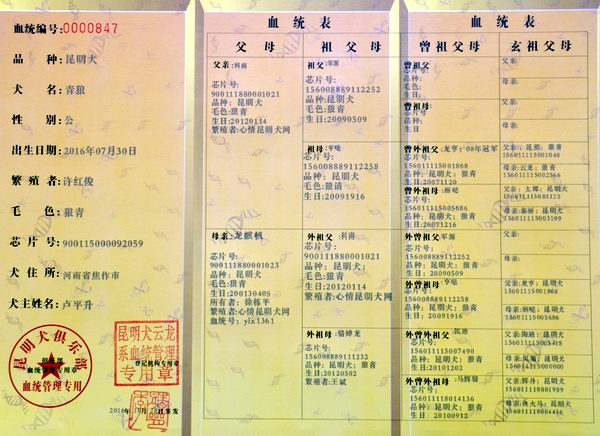 血统编号:0000847
品 种:昆明犬
犬 名:青狼
性 别:公
出生日期:2016年07月30日
繁 殖 者:许红俊
毛 色:狼青
芯 片 号:900115000092059
犬 住 所:河南省焦作市
犬主姓名:卢平升
昆明犬俱乐部
血统管理专用
昆明犬云龙
系血统管理
专用章
血统表
父母
祖父母
父亲:科南
芯片号:
900111880001021
品种:昆明犬
毛色:狼青
生日:20120114
繁殖者:心情昆明犬网
祖父:军源
芯片号:
1560088891122​52
品种:昆明犬
毛色:狼青
生日:20090509
祖母:亨哒
芯片号:
156008889112258
品种:昆明犬
毛色:狼请
生日:20091916
母亲:龙麒帆
芯片号:
900111880001023
品种:昆明犬
毛色:狼青
生日:200130405
所有者:徐栋平
繁殖者:心情昆明犬网
血统号:ylx1361
外祖父:科南
芯片号:
900111880001021
品种:昆明犬
毛色:狼青
生日:20120114
繁殖者:心情昆明犬网
外祖母:骆婵龙
芯片号:
15600888911123​2
品种:昆明犬
毛色:狼青
生日:20120502
繁殖者:王斌
血统表
曾祖父母
玄祖父母
曾祖父:
芯片号:
品种:
毛色:
生日:
父亲:
母亲:
曾祖母:
芯片号:
品种:
生日
父亲:
母亲:
曾外祖父:龙亨:08年冠军
芯片号:
156011115001868
品种:昆明犬:狼青
生日:20071120
156011115001048
母亲:云龙:狼青
156011115002566
曾外祖母:丽哒
芯片号:
156011115005686
品种:昆明犬:狼青
生日:20071216
父亲:太郎:昆明犬
母亲:泰丽:昆明犬
156011115003199
外曾祖父:军源
芯片号:
156008889112252
品种:昆明犬:狼青
生日:20090509
父亲:
母亲:
外曾祖母:亨哒
芯片号:
156008889112258
品种:昆明犬:狼青
生日:20091916
父亲:龙亨:昆明犬
母亲:丽哒:昆明犬
156011115005686
外曾外祖父:凯迪
芯片号:
156011115007490
品种:昆明犬:狼青
生日:20101202
父亲:海迪:昆明犬
156011115003418
母亲:凤凰:昆明犬
外曾外祖母:马辉肠
芯片号:
156011118014136
品种:昆明犬:狼青
生日:20100912
父亲:辉丹:昆明犬
156011118001909
母亲:典火马:昆明犬
156011118004456